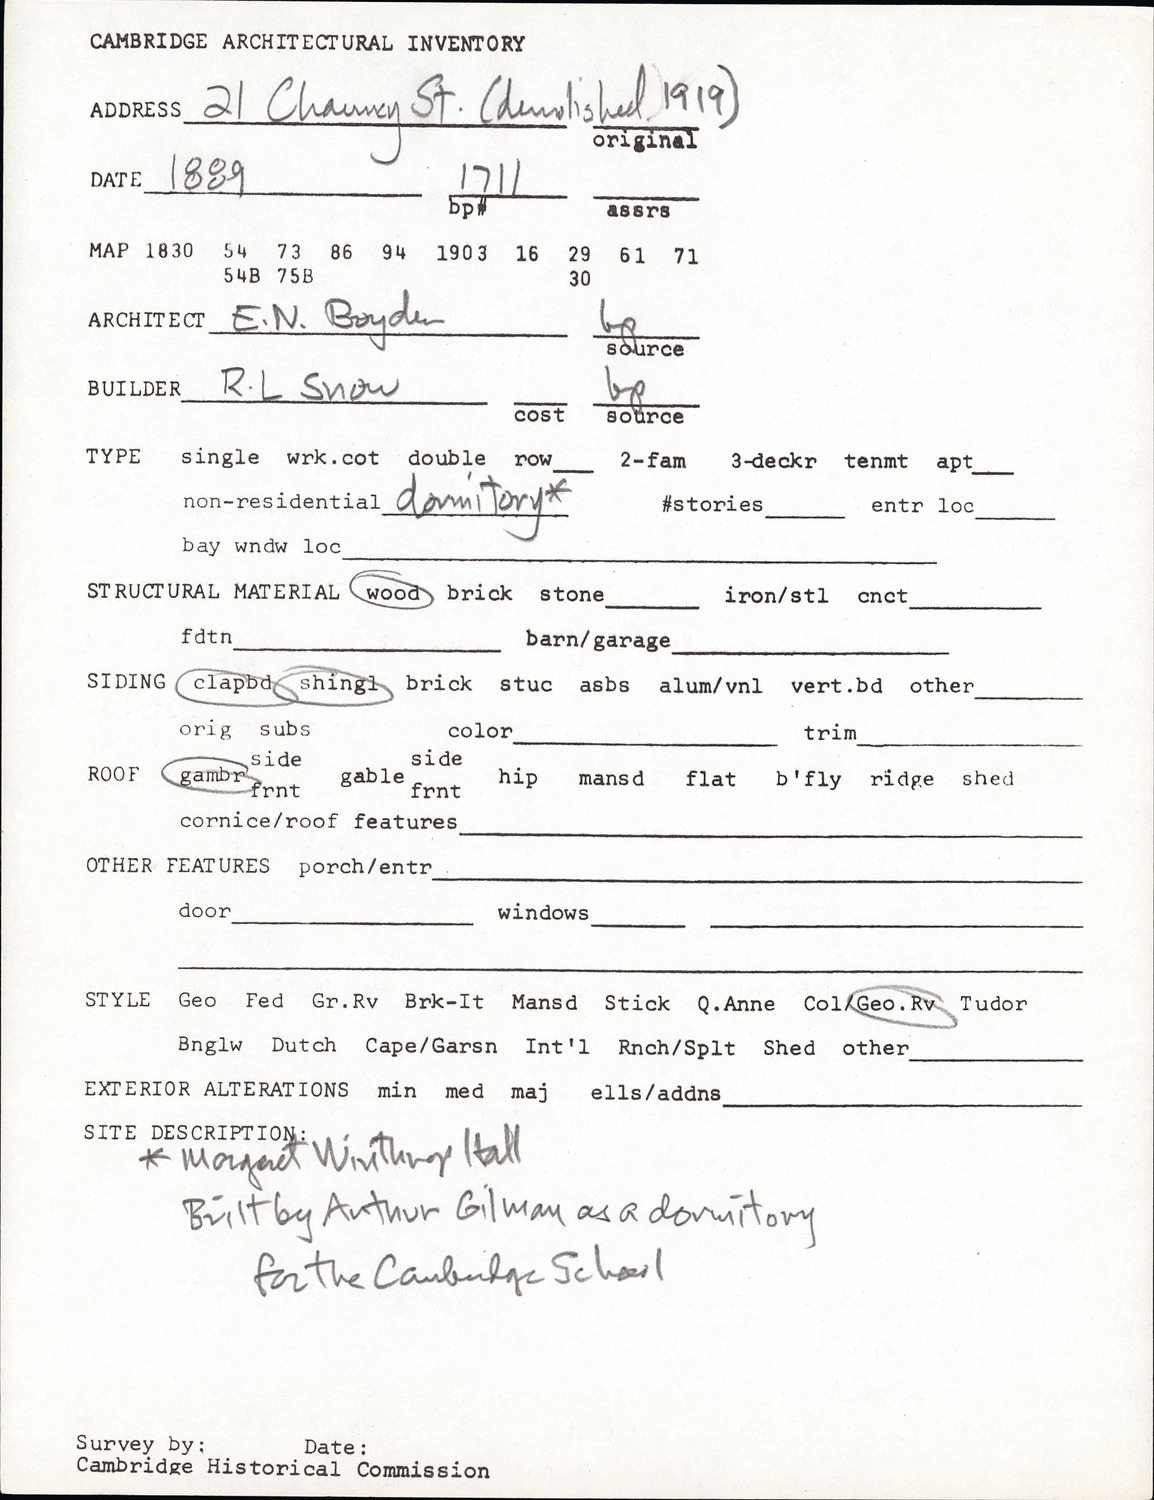 CAMBRIDGE ARCHITECTURAL INVENTORY
ADDRESS 21 Chauncy St. (demolished 1919)
original
DATE 1889 1711
bp# assrs
MAP 1830 54 73 86 94 1903 16 29 61 71
54B 75B 30
ARCHITECT E.N. Boyden bp
source
BUILDER R.L Snow bp
cost source
TYPE single wrk.cot double row 2-fam 3-deckr tenmt apt
non-residential dormitory* #stories entr loc
bay wndw loc
STRUCTURAL MATERIAL wood brick stone iron/stl cnct
fdtn barn/garage
SIDING clapbd shingl brick stuc asbs alum/vnl vert.bd other
orig subs color trim
side side
ROOF gambr gable hip mansd flat b'fly ridge shed
frnt frnt
cornice/roof features
OTHER FEATURES porch/entr
door windows
STYLE Geo Fed Gr.Rv Brk-It Mansd Stick Q.Anne Col/Geo.Rv Tudor
Bnglw Dutch Cape/Garsn Int'l Rnch/Splt Shed other
EXTERIOR ALTERATIONS min med maj ells/addns
SITE DESCRIPTION:
* Margaret Winthrop Hall
Built by Arthur Gilman as a dormitory
for the Cambridge School
Survey by: Date:
Cambridge Historical Commission